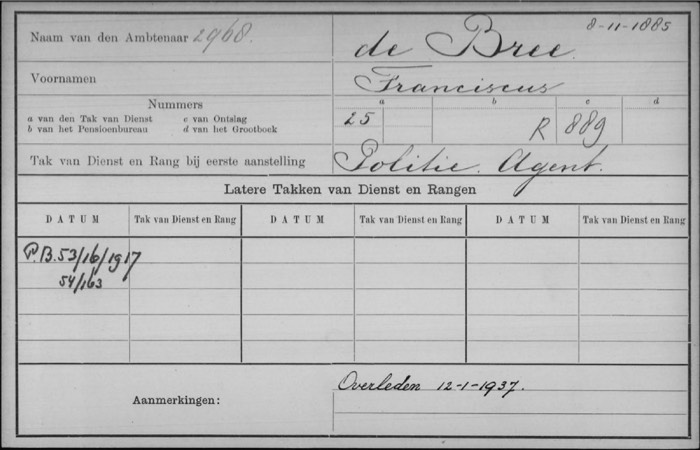 8-11-1885
Naam van den Ambtenaar 2968. de Bree
Voornamen Franciscus
Nummers a b c d
a van den Tak van Dienst c van Ontslag 25
b van het Pensioenbureau d van het Grootboek R 889
Tak van Dienst en Rang bij eerste aanstelling Politie. Agent.
Latere Takken van Dienst en Rangen
DATUM Tak van Dienst en Rang DATUM Tak van Dienst en Rang DATUM Tak van Dienst en Rang
P.B. 53/16/1917
54/163
Overleden 12-1-1937.
Aanmerkingen: